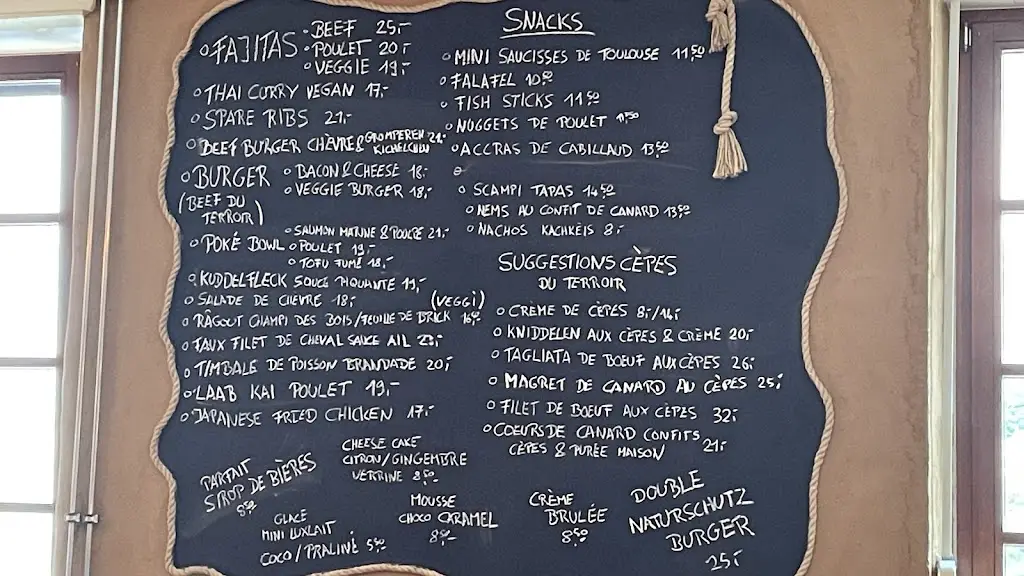 FAJITAS
BEEF 25,-
POULET 20,-
VEGGIE 19,-
THAI CURRY VEGAN 17,-
SPARE RIBS 21,-
BEEF BURGER CHÈVRE & GROMPEREN KICHELCHEN 21,-
BURGER
BACON & CHEESE 18,-
VEGGIE BURGER 18,-
(BEEF DU
TERROIR)
POKÉ BOWL
SAUMON MARINÉ & POULPE 21,-
POULET 19,-
TOFU FUMÉ 18,-
KUDDELFLECK SAUCE PIQUANTE 19,-
SALADE DE CHÈVRE 18,-
(VEGGI)
RAGOUT CHAMPI DES BOIS/FEUILLE DE BRICK 16,50
FAUX FILET DE CHEVAL SAUCE AIL 23,-
TIMBALE DE POISSON BRANDADE 20,-
LAAB KAI POULET 19,-
JAPANESE FRIED CHICKEN 17,-
SNACKS
MINI SAUCISSES DE TOULOUSE 11,50
FALAFEL 10,50
FISH STICKS 11,50
NUGGETS DE POULET 11,50
ACCRAS DE CABILLAUD 13,50
SCAMPI TAPAS 14,50
NEMS AU CONFIT DE CANARD 13,50
NACHOS KACHKÉIS 8,-
SUGGESTIONS CÈPES
DU TERROIR
CRÈME DE CÈPES 8,-/14,-
KNIDDELEN AUX CÈPES & CRÈME 20,-
TAGLIATA DE BOEUF AUX CÈPES 26,-
MAGRET DE CANARD AU CÈPES 25,-
FILET DE BOEUF AUX CÈPES 32,-
COEURS DE CANARD CONFITS
CÈPES & PURÉE MAISON 21,-
PARFAIT
SIROP DE BIÈRES
8,50
CHEESE CAKE
CITRON/GINGEMBRE
VERRINE 8,50
GLACE
MINI LUXLAIT
COCO/PRALINÉ 5,50
MOUSSE
CHOCO CARAMEL
8,50
CRÈME
BRULÉE
8,50
DOUBLE
NATURSCHUTZ
BURGER
25,-